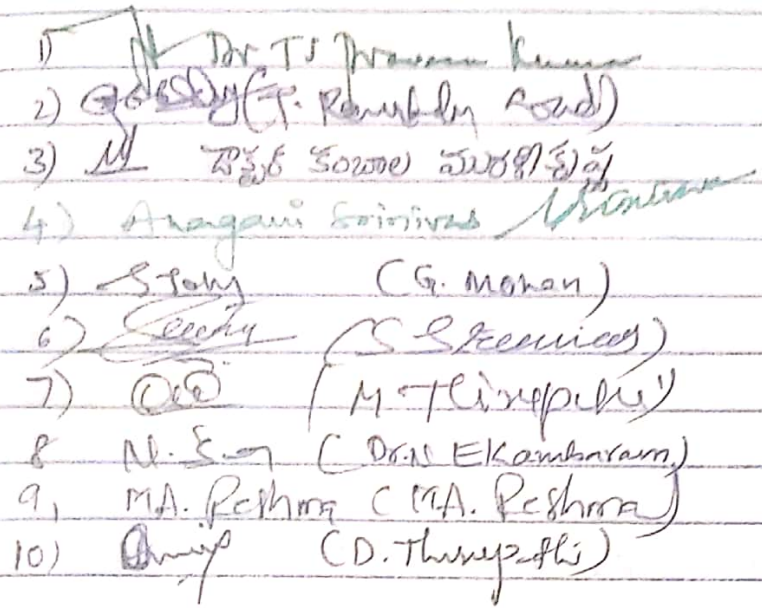 1) Dr TS Praveen Kumar
2) (P. Goud)
3) డాక్టర్ కంబాల మురళీకృష్ణ
4) Anagani Srinivas
5) (G. Mohan)
6) (S Sreenivas)
7) (M. Thirupathi)
8 (Dr. N Ekambaram)
9, MA. Reshma (MA. Reshma)
10) (D. Thirupathi)